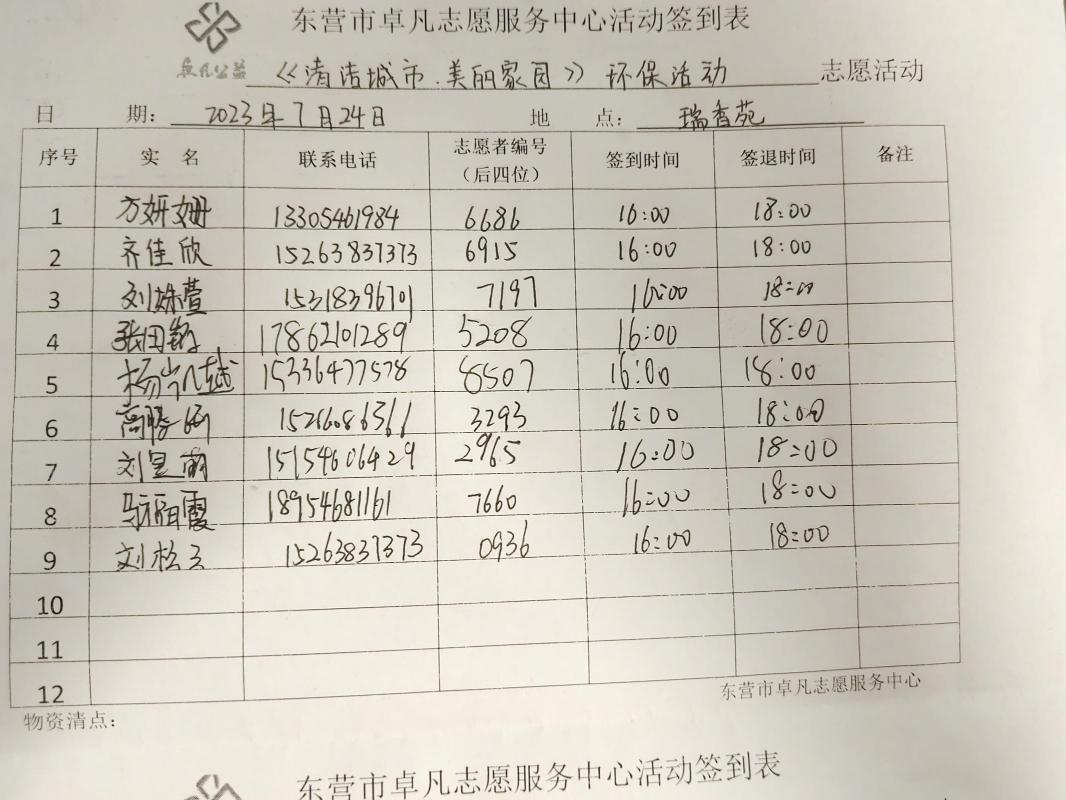 东营市卓凡志愿服务中心活动签到表
卓凡公益 《清洁城市.美丽家园》环保活动 志愿活动
日 期: 2023年7月24日 地 点: 瑞香苑
序号 实 名 联系电话 志愿者编号（后四位） 签到时间 签退时间 备注
1 方妍姗 13305461984 6686 16:00 18:00
2 齐佳欣 15263837373 6915 16:00 18:00
3 刘姝萱 15318396701 7197 16:00 18:00
4 17862101289 5208 16:00 18:00
5 杨凯越 15336477578 8507 16:00 18:00
6 3293 16:00 18:00
7 刘昱萌 15154606429 2965 16:00 18:00
8 18954681161 7660 16:00 18:00
9 15263837373 0936 16:00 18:00
10
11
12
东营市卓凡志愿服务中心
物资清点:
东营市卓凡志愿服务中心活动签到表